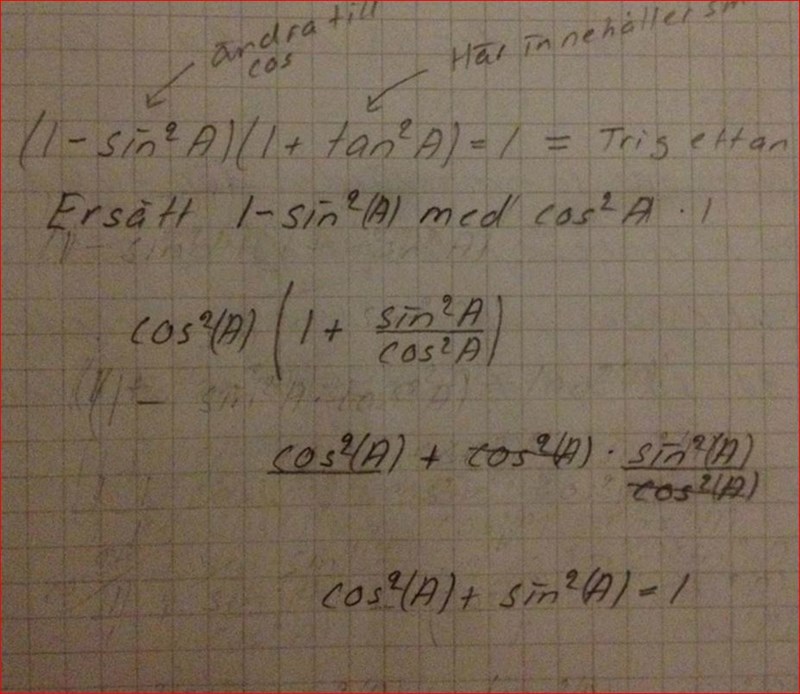 ändra till
cos
Här innehåller sin
(1 - sin²A)(1 + tan²A) = 1 = Trig ettan
Ersätt 1-sin²(A) med cos²A · 1
cos²(A) (1 + sin²A/cos²A)
cos²(A) + cos²(A) · sin²(A)/cos²(A)
cos²(A) + sin²(A) = 1